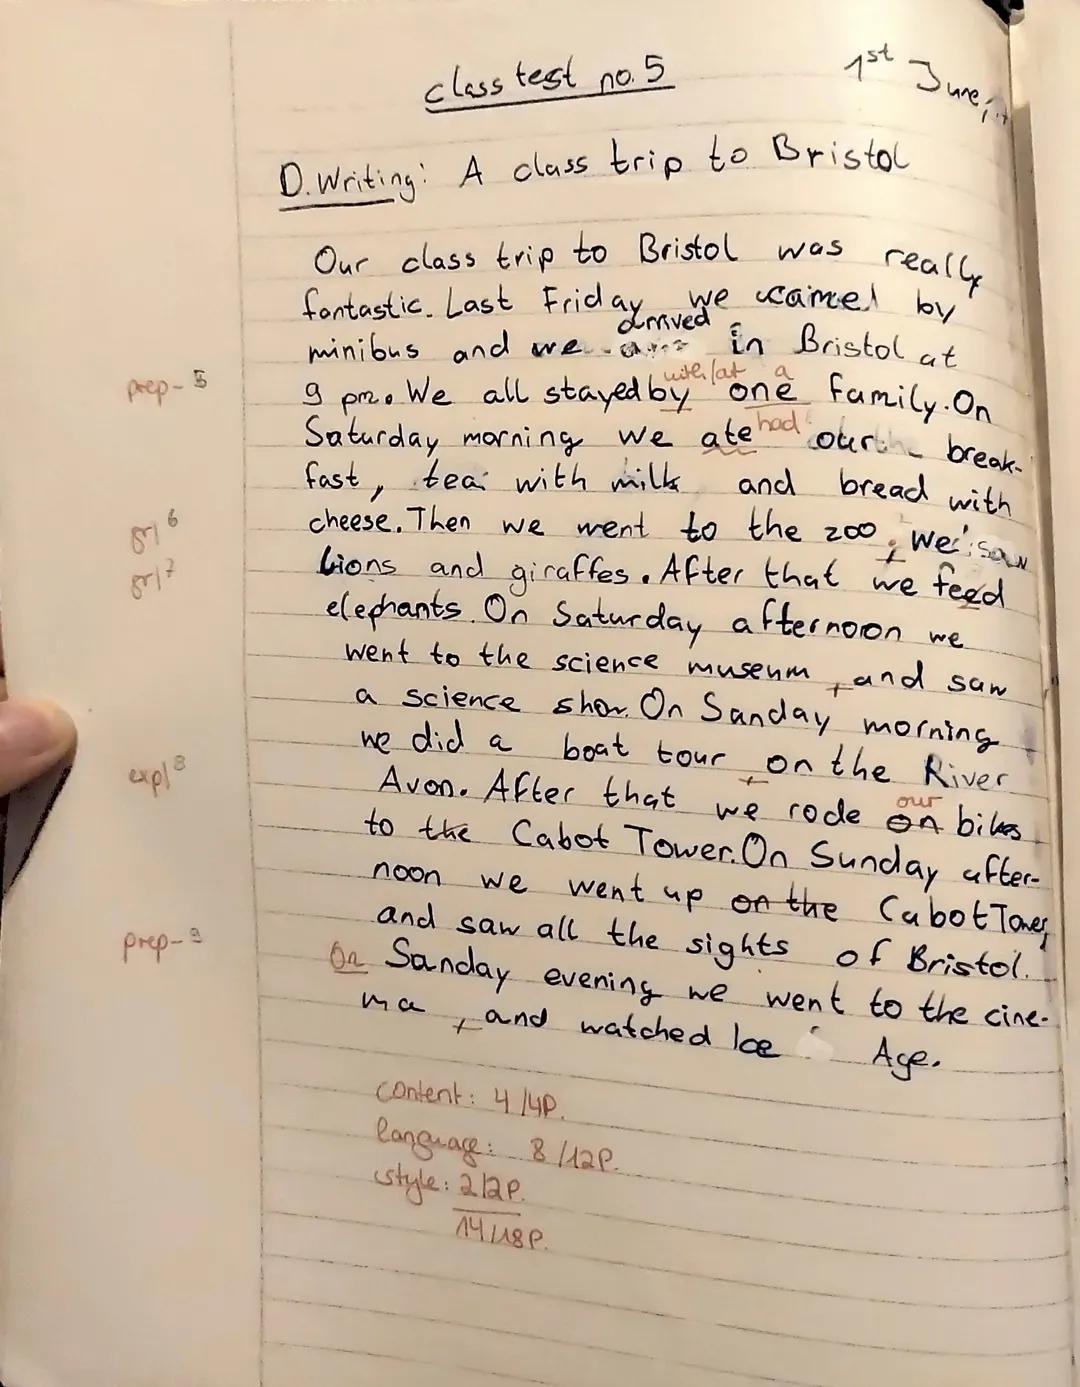 class test no. 5
1st June,
D. Writing: A class trip to Bristol
Our class trip to Bristol was really
fantastic. Last Friday we came by
arrived
minibus and we in Bristol at
with/at a
prep- 5
9 pm. We all stayed by one family. On
had
Saturday morning we ate our break-
fast, tea with milk and bread with
cheese. Then we went to the zoo, We saw
gr/ 6
Lions and giraffes. After that we feed
gr/ 7
elephants. On Saturday afternoon we
went to the science museum, and saw
a science show. On Sanday morning
we did a boat tour on the River
expl 8
Avon. After that we rode on bikes
our
to the Cabot Tower. On Sunday after-
noon we went up on the Cabot Tower
and saw all the sights of Bristol.
prep- 9
On Sanday evening we went to the cine-
ma, and watched Ice Age.
content: 4/4P.
language: 8/12P.
style: 2/2P.
14/18P.